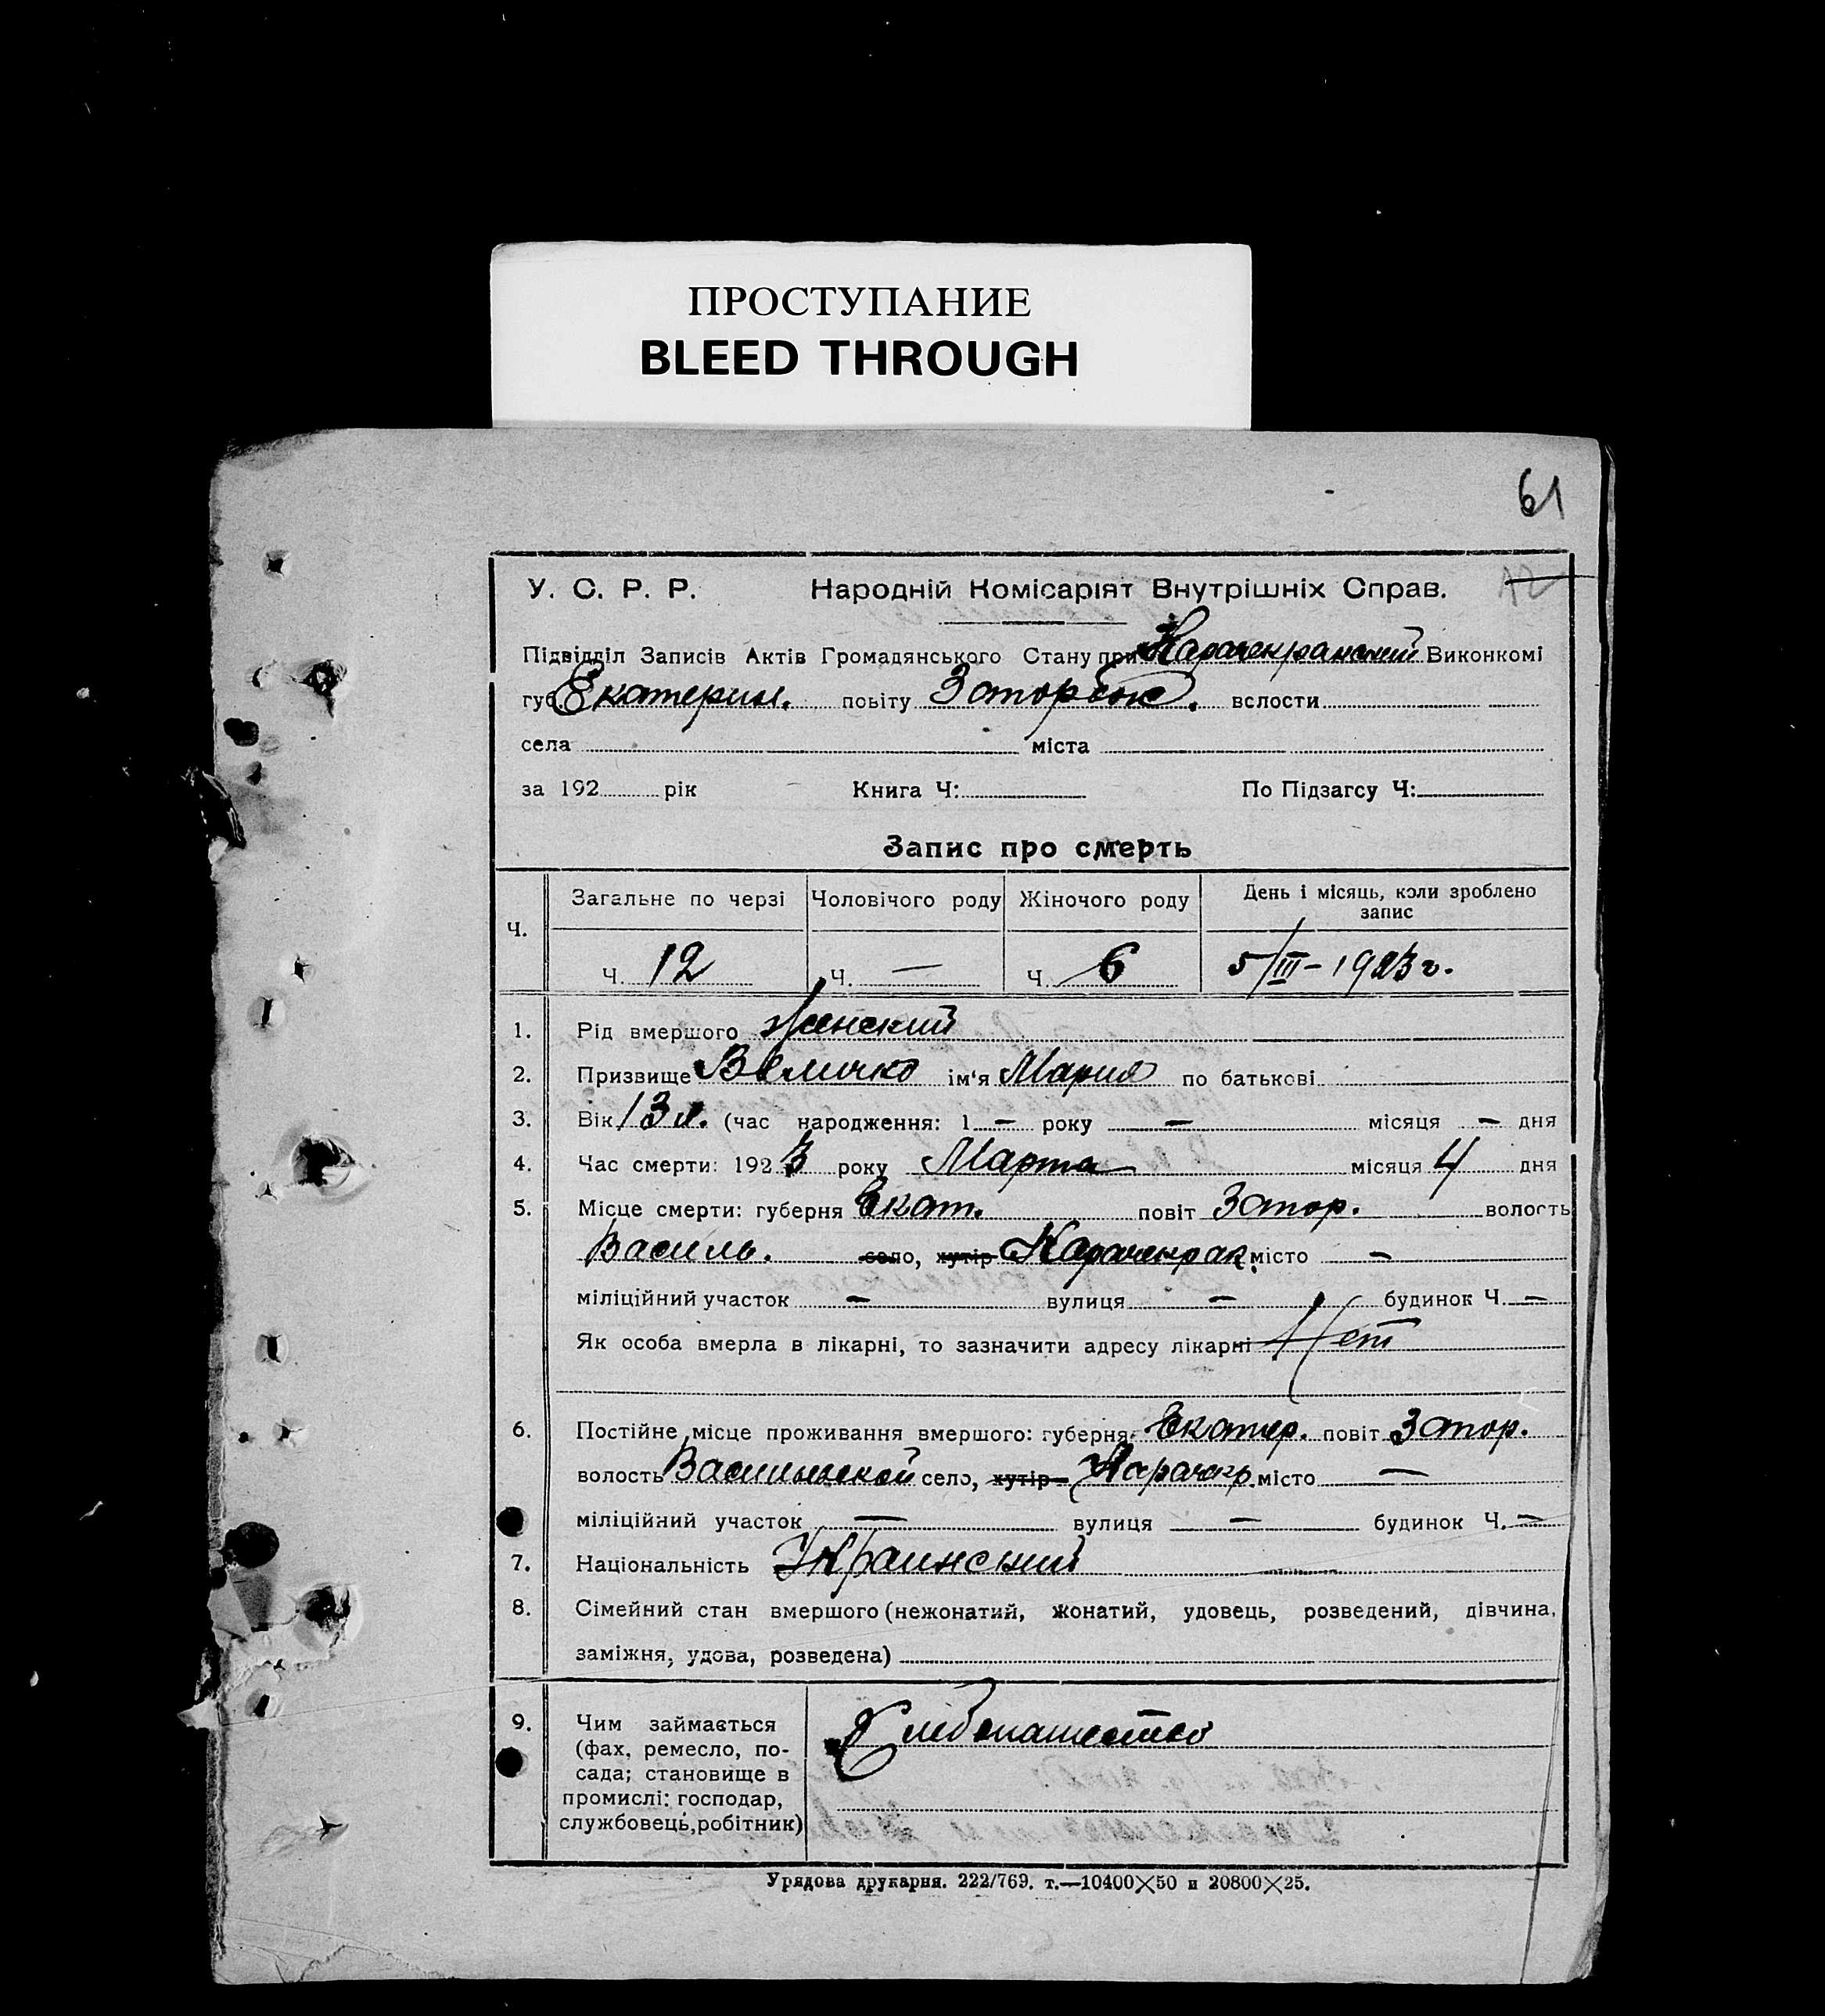 ПРОСТУПАНИЕ
BLEED THROUGH
61
У. С. Р. Р. Народній Комісаріят Внутрішніх Справ. 12
Підвідділ Записів Актів Громадянського Стану при Карачекракский Виконкомі
губ. Екатерин. повіту Запорожс. вслости
села міста
за 192 рік Книга Ч: По Підзагсу Ч:
Запис про смерть
Ч. Загальне по черзі Чоловічого роду Жіночого роду День і місяць, коли зроблено
запис
Ч. 12 Ч. — Ч. 6 5/III-1923 г.
1. Рід вмершого Женский
2. Призвище Величко ім'я Мария по батькові
3. Вік 13 л. (час народження: 1 — року — місяця — дня
4. Час смерти: 1923 року Марта місяця 4 дня
5. Місце смерти: губерня Екат. повіт Запор. волость
Василь. село, хутір Карачекрак. місто —
міліційний участок — вулиця — будинок Ч. —
Як особа вмерла в лікарні, то зазначити адресу лікарні Нет
6. Постійне місце проживання вмершого: губерня Екатер. повіт Запор.
волость Васильевской село, хутір Карачекр. місто —
міліційний участок — вулиця — будинок Ч. —
7. Національність Украинский
8. Сімейний стан вмершого (нежонатий, жонатий, удовець, розведений, дівчина,
заміжня, удова, розведена)
9. Чим займається Хлебопашество
(фах, ремесло, по-
сада; становище в
промислі: господар,
службовець, робітник)
Урядова друкарня. 222/769. т.—10400×50 и 20800×25.